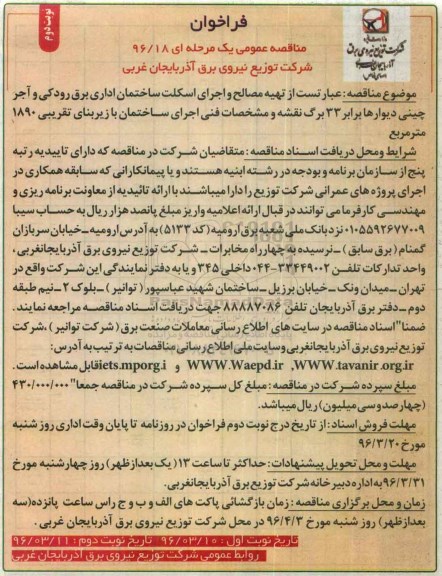 نوبت دوم
فراخوان
مناقصه عمومی یک مرحله ای ۹۶/۱۸
شرکت توزیع نیروی برق آذربایجان غربی
شرکت توزیع نیروی برق
موضوع مناقصه: عبارتست از تهیه مصالح و اجرای اسکلت ساختمان اداری برق رودکی و آجر
چینی دیوارها برابر ۳۳ برگ نقشه و مشخصات فنی اجرای ساختمان با زیربنای تقریبی ۱۸۹۰
مترمربع
شرایط و محل دریافت اسناد مناقصه: متقاضیان شرکت در مناقصه که دارای تاییدیه رتبه
پنج از سازمان برنامه و بودجه در رشته ابنیه هستند و یا پیمانکارانی که سابقه همکاری در
اجرای پروژه های عمرانی شرکت توزیع را دارا میباشند با ارائه تائیدیه از معاونت برنامه ریزی و
مهندسی کارفرما می توانند در قبال ارائه اعلامیه واریز مبلغ پانصد هزار ریال به حساب سیبا
۰۱۰۵۵۹۲۶۷۷۰۰۹ نزد بانک ملی شعبه برق ارومیه (کد ۵۱۳۳) به آدرس ارومیه ـ خیابان سربازان
گمنام (برق سابق) ـ نرسیده به چهارراه مخابرات ـ شرکت توزیع نیروی برق آذربایجانغربی،
واحد تدارکات تلفن ۳۳۴۴۹۰۰۲-۰۴۴ داخلی ۳۴۵ و یا به دفتر نمایندگی این شرکت واقع در
تهران ـ میدان ونک ـ خیابان برزیل ـ ساختمان شهید عباسپور ( توانیر ) ـ بلوک ۲ ـ نیم طبقه
دوم ـ دفتر برق آذربایجان تلفن ۸۸۸۸۷۰۸۶ جهت دریافت اسناد مناقصه مراجعه نمایند.
ضمنا" اسناد مناقصه در سایت های اطلاع رسانی معاملات صنعت برق ( شرکت توانیر ) ،شرکت
توزیع نیروی برق آذربایجانغربی وسایت ملی اطلاع رسانی مناقصات به ترتیب به آدرس:
WWW.tavanir.org.ir، WWW.Waepd.ir و iets.mporg.i قابل مشاهده است.
مبلغ سپرده شرکت در مناقصه: مبلغ کل سپرده شرکت در مناقصه جمعا" ۴۳۰/۰۰۰/۰۰۰
(چهارصد و سی میلیون) ریال میباشد.
مهلت فروش اسناد: از تاریخ درج نوبت دوم فراخوان در روزنامه تا پایان وقت اداری روز شنبه
مورخ ۹۶/۳/۲۰
مهلت و محل تحویل پیشنهادات: حداکثر تا ساعت ۱۳ (یک بعدازظهر) روز چهارشنبه مورخ
۹۶/۳/۳۱ به اداره دبیرخانه شرکت توزیع برق آذربایجانغربی.
زمان و محل برگزاری مناقصه: زمان بازگشائی پاکت های الف و ب و ج راس ساعت پانزده (سه
بعدازظهر) روز شنبه مورخ ۹۶/۴/۳ در محل شرکت توزیع نیروی برق آذربایجان غربی.
تاریخ نوبت اول: ۹۶/۰۳/۱۰ تاریخ نوبت دوم: ۹۶/۰۳/۱۱
روابط عمومی شرکت توزیع نیروی برق آذربایجان غربی